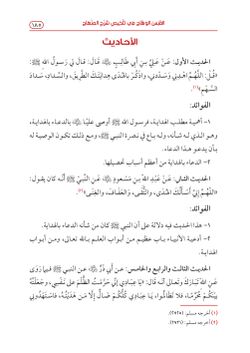 القبس الوهاج في تلخيص شرح المنهاج
١٨٥
الأحاديث
الحديث الأول: عَنْ عَلِيِّ بْنِ أَبِي طَالِبٍ ﷺ، قَالَ: قَالَ لِي رَسُولُ اللهِ ﷺ:
«قُلْ: اللَّهُمَّ اهْدِنِي وَسَدِّدْنِي، وَاذْكُرْ بِالْهُدَى هِدَايَتَكَ الطَّرِيقَ، وَالسَّدَادِ، سَدَادَ
السَّهْمِ»(١).
الفوائد:
١- أهمية مطلب الهداية، فرسول الله ﷺ أوصى عليًا بالدعاء بالهداية،
وهو الذي له شأنه، وله باع في نصرة النبي ﷺ، ومع ذلك تكون الوصية له
بأن يدعو بهذا الدعاء.
٢- الدعاء بالهداية من أعظم أسباب تحصيلها.
الحديث الثاني: عَنْ عَبْدِ اللهِ بْنِ مَسْعُودٍ، عَنِ النَّبِيِّ ﷺ أَنَّهُ كَانَ يَقُولُ:
«اللَّهُمَّ إِنِّي أَسْأَلُكَ الْهُدَى، وَالتُّقَى، وَالْعَفَافَ، وَالْغِنَى»(٢).
الفوائد:
١- هذا الحديث فيه دلالة على أن النبي ﷺ كان من شأنه الدعاء بالهداية.
٢- أدعية الأنبياء باب عظيم من أبواب العلم بالله تعالى، ومن أبواب
الهداية.
الحديث الثالث والرابع والخامس: عَنْ أَبِي ذَرٍّ، عَنِ النبي ﷺ فيما رَوَى
عَنِ اللهِ تَبَارَكَ وَتَعَالَى أَنَّهُ قَالَ: «يَا عِبَادِي إِنِّي حَرَّمْتُ الظُّلْمَ عَلَى نَفْسِي، وَجَعَلْتُهُ
بَيْنَكُمْ مُحَرَّمًا، فَلَا تَظَالَمُوا، يَا عِبَادِي كُلُّكُمْ ضَالٌّ إِلَّا مَنْ هَدَيْتُهُ، فَاسْتَهْدُونِي
(١) أخرجه مسلم: (٢٧٢٥).
(٢) أخرجه مسلم: (٢٧٢١).